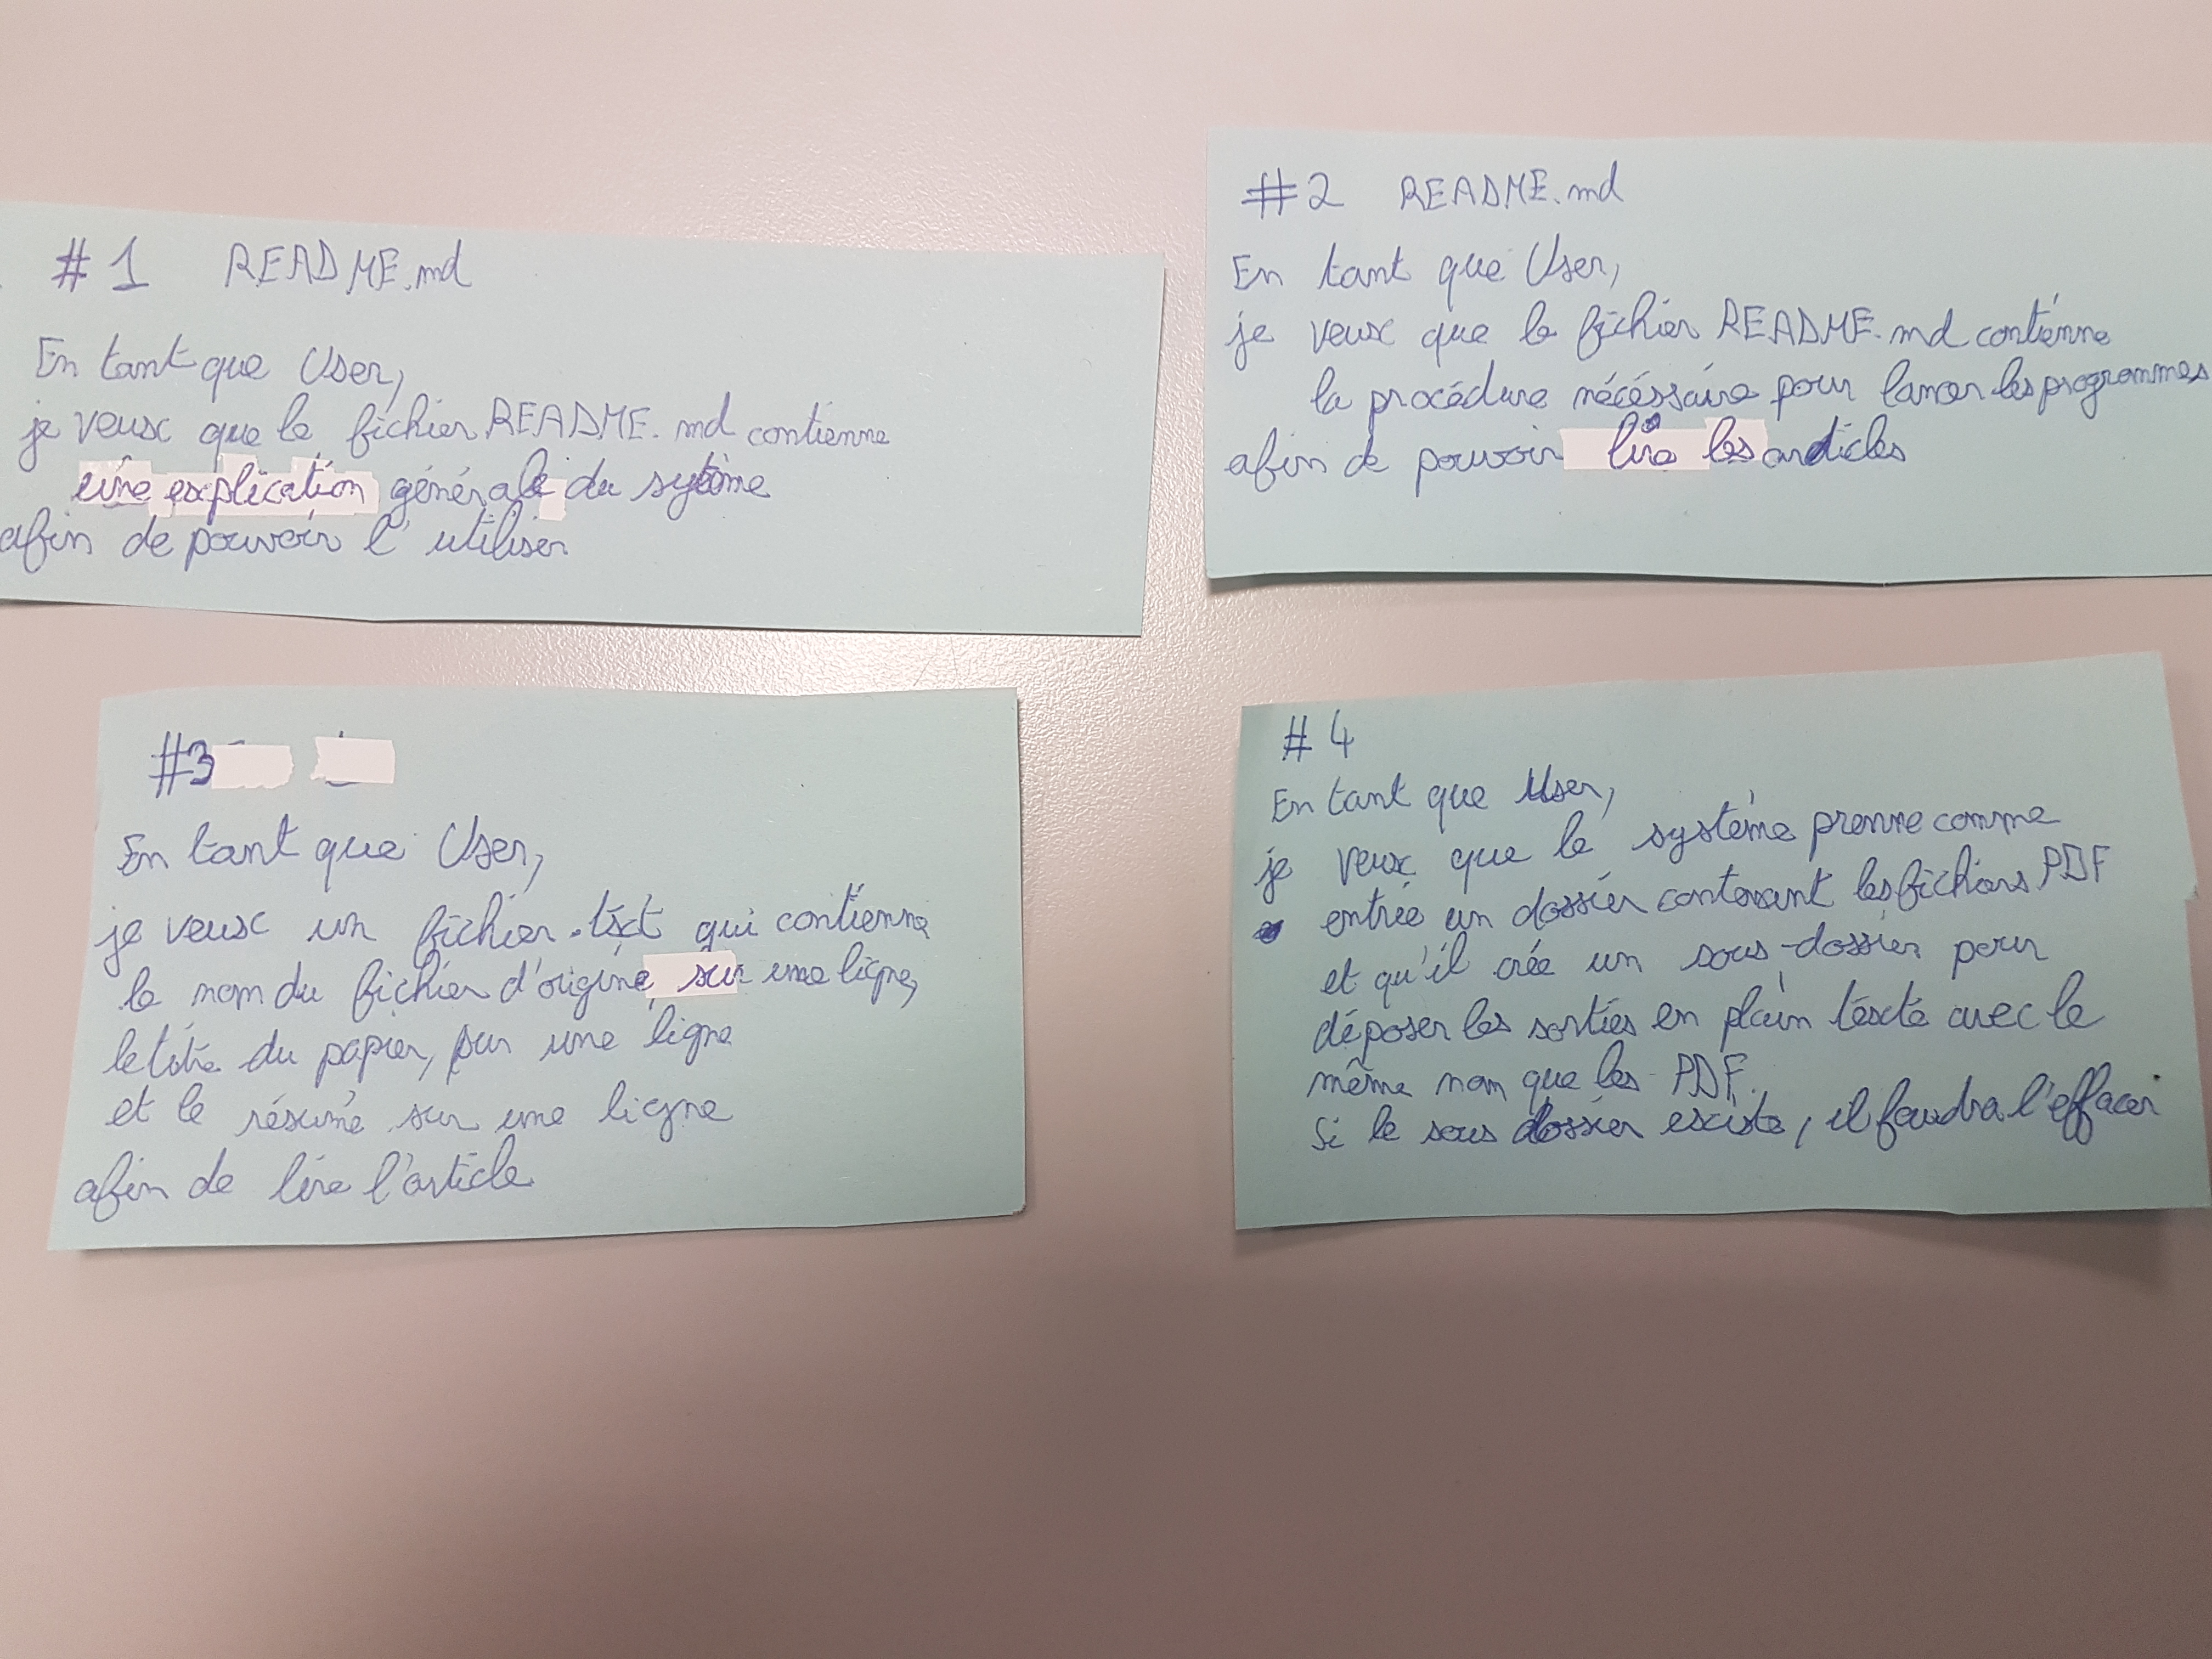 #1 README.md
En tant que User,
je veux que le fichier README.md contienne
une explication générale du sytème
afin de pouvoir l'utiliser
#2 README.md
En tant que User,
je veux que le fichier README.md contienne
la procédure nécéssaire pour lancer les programmes
afin de pouvoir lire les articles
#3
En tant que User,
je veux un fichier .txt qui contienne
le nom du fichier d'origine sur une ligne,
le titre du papier, sur une ligne
et le résumé sur une ligne
afin de lire l'article
#4
En tant que User,
je veux que le système prenne comme
entrée un dossier contenant les fichiers PDF
et qu'il crée un sous-dossier pour
déposer les sorties en plain texte avec le
même nom que les PDF.
Si le sous dossier existe, il faudra l'effacer